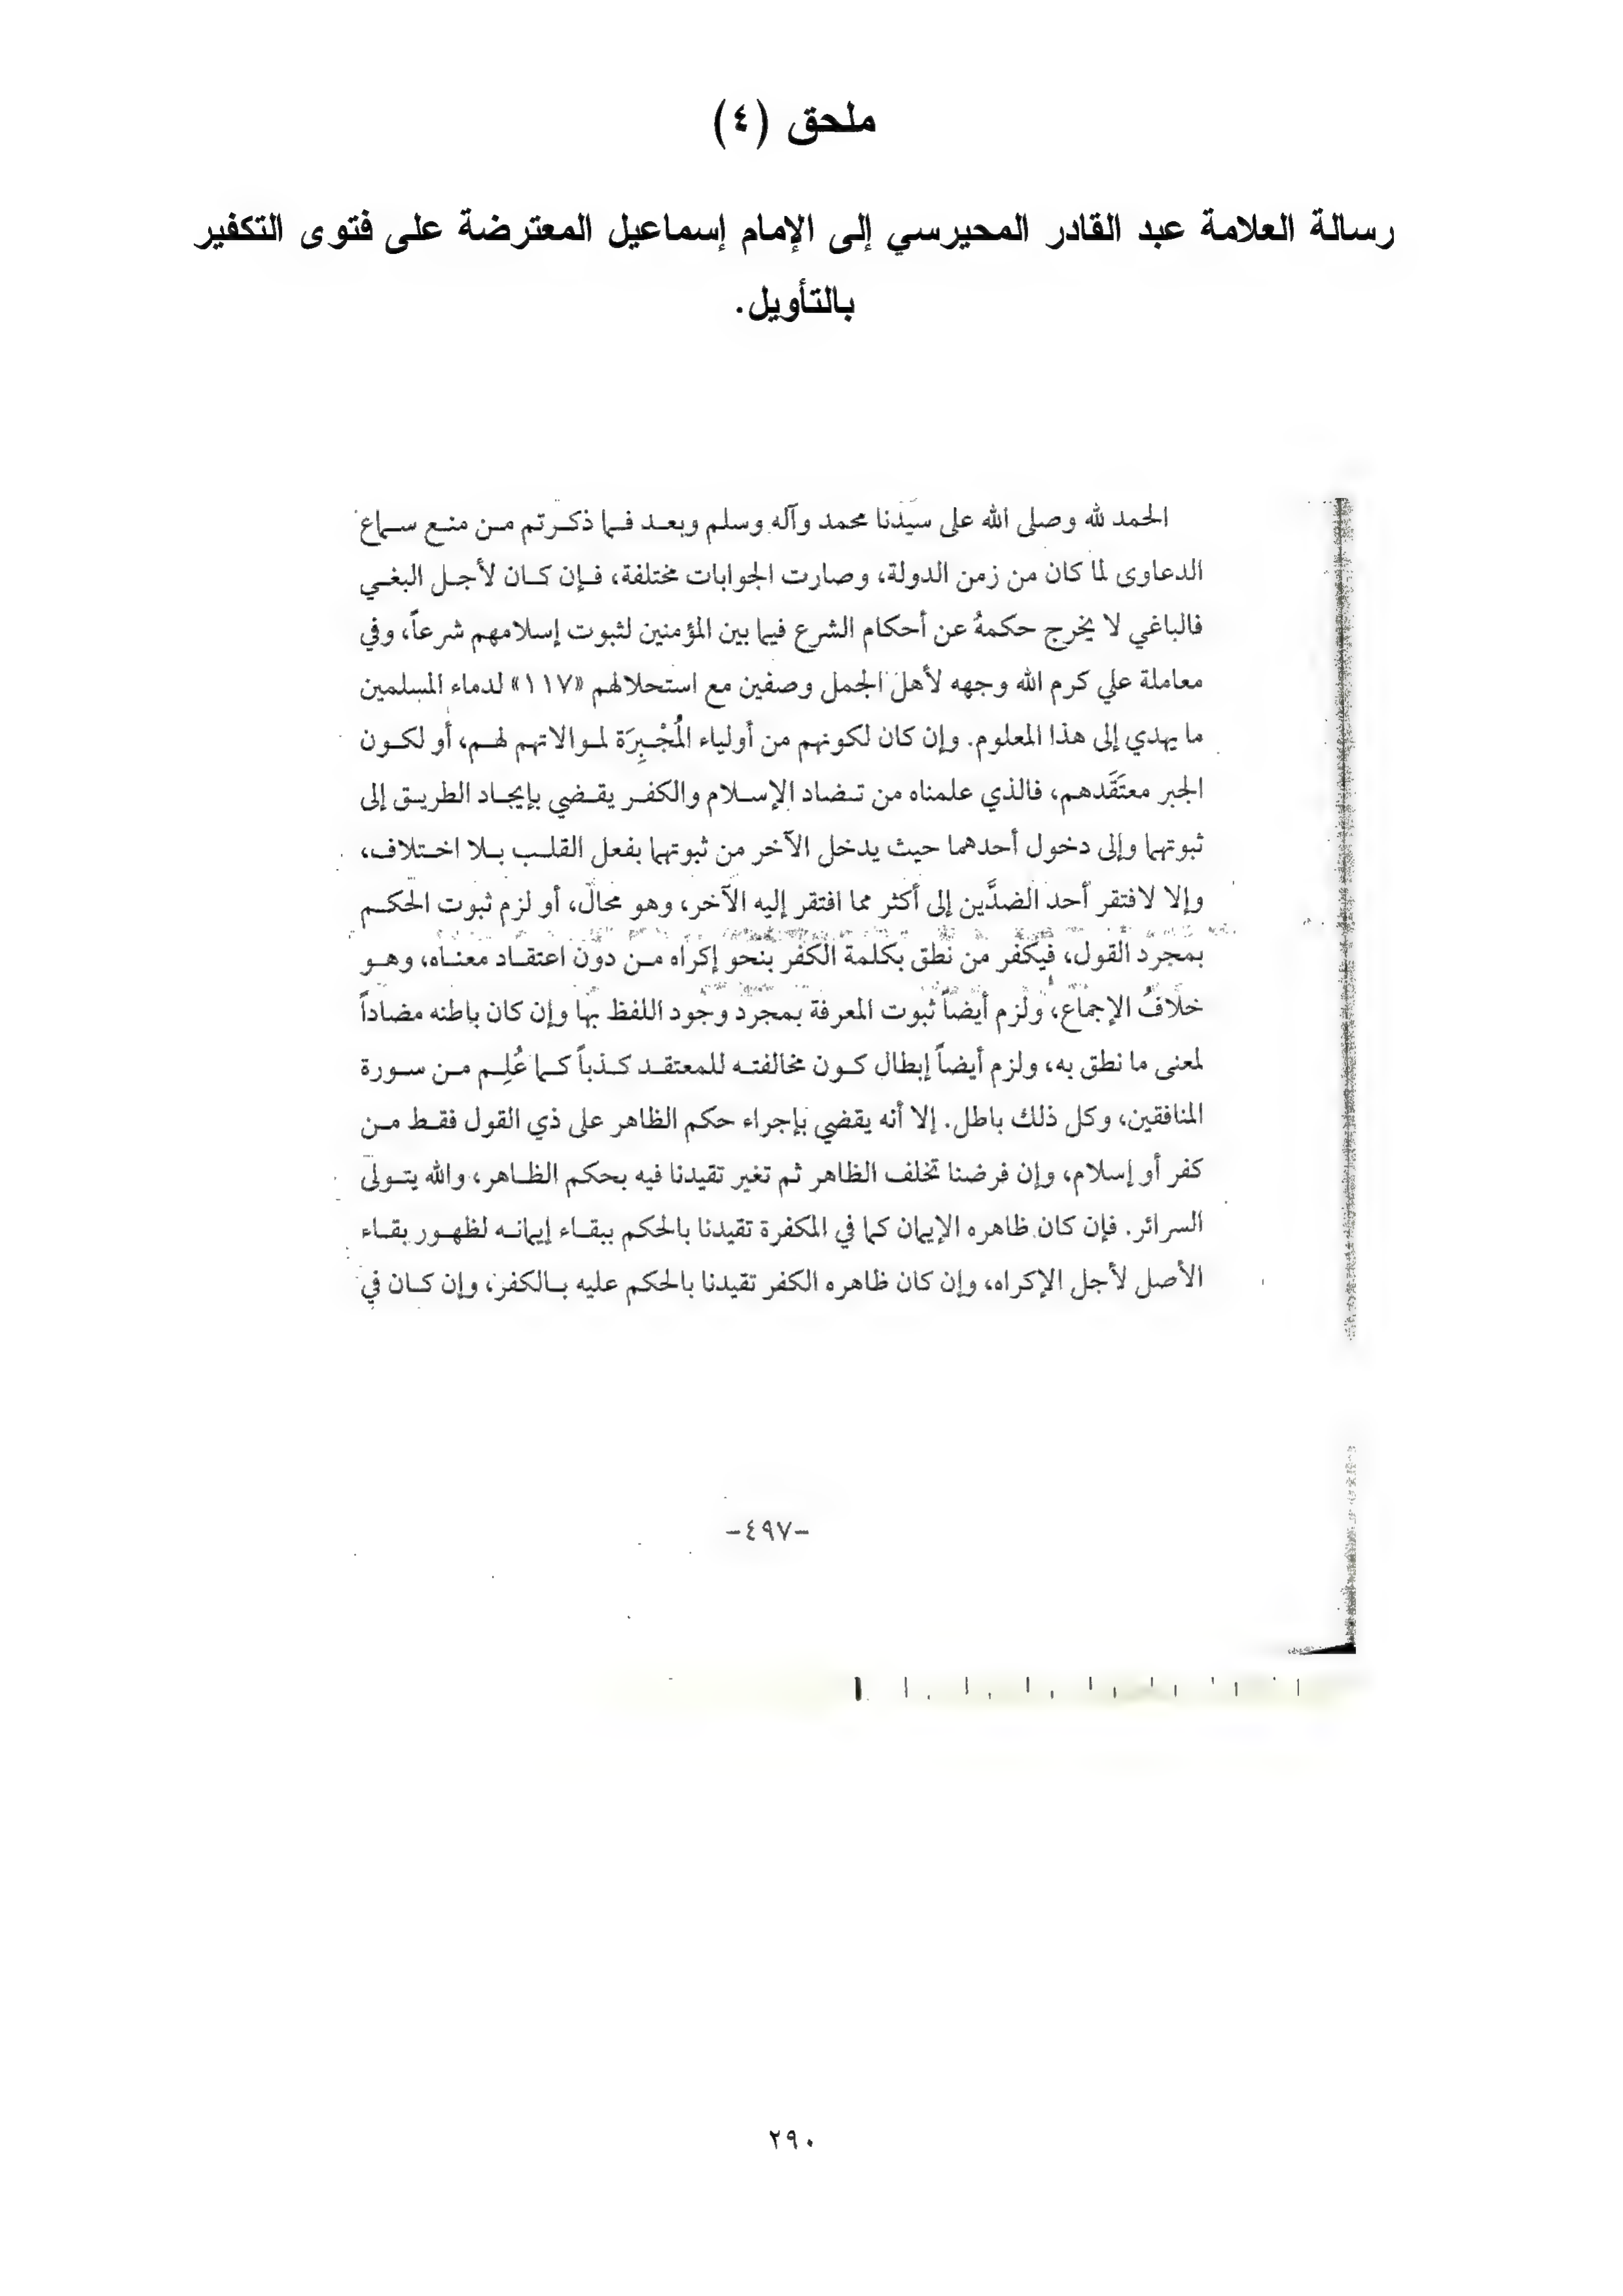 ملحق (٤)
رسالة العلامة عبد القادر المحيرسي إلى الإمام إسماعيل المعترضة على فتوى التكفير
بالتأويل.
الحمد لله وصلى الله على سيّدنا محمد وآله وسلم وبعد فما ذكرتم من منع سماع
الدعاوى لما كان من زمن الدولة، وصارت الجوابات مختلفة، فإن كان لأجل البغي
فالباغي لا يخرج حكمهُ عن أحكام الشرع فيما بين المؤمنين لثبوت إسلامهم شرعاً، وفي
معاملة علي كرم الله وجهه لأهل الجمل وصفين مع استحلالهم «١١٧» لدماء المسلمين
ما يهدي إلى هذا المعلوم. وإن كان لكونهم من أولياء المُجْبِرَة لموالاتهم لهم، أو لكون
الجبر معتَقَدهم، فالذي علمناه من تضاد الإسلام والكفر يقضي بإيجاد الطريق إلى
ثبوتهما وإلى دخول أحدهما حيث يدخل الآخر من ثبوتهما بفعل القلب بلا اختلاف،
وإلا لافتقر أحد الضدَّين إلى أكثر مما افتقر إليه الآخر، وهو محالٌ، أو لزم ثبوت الحكم
بمجرد القول، فيكفر من نطق بكلمة الكفر بنحو إكراه من دون اعتقاد معناه، وهو
خلافُ الإجماع، ولزم أيضاً ثبوت المعرفة بمجرد وجود اللفظ بها وإن كان باطنه مضاداً
لمعنى ما نطق به، ولزم أيضاً إبطال كون مخالفته للمعتقد كذباً كما عُلِم من سورة
المنافقين، وكل ذلك باطل. إلا أنه يقضي بإجراء حكم الظاهر على ذي القول فقط من
كفر أو إسلام، وإن فرضنا تخلف الظاهر ثم تغير تقيدنا فيه بحكم الظاهر، والله يتولى
السرائر. فإن كان ظاهره الإيمان كما في المكفرة تقيدنا بالحكم ببقاء إيمانه لظهور بقاء
الأصل لأجل الإكراه، وإن كان ظاهره الكفر تقيدنا بالحكم عليه بالكفر، وإن كان في
-٤٩٧-
٢٩٠